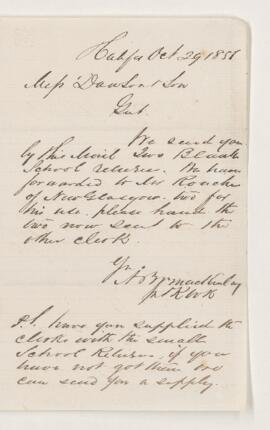 Halifax Oct 29 1856
Mess Dawson & Son
Gent.
We send you
by this Mail Two Blank
School returns. We have
forwarded to Mr Roache
of New Glasgow two for
his use. please hand the
two now sent to the
other clerk.
Yrs
A & W Mackinlay
P.S. have you supplied the
clerks with the small
School Returns, if you
have not got them we
can send you a supply.